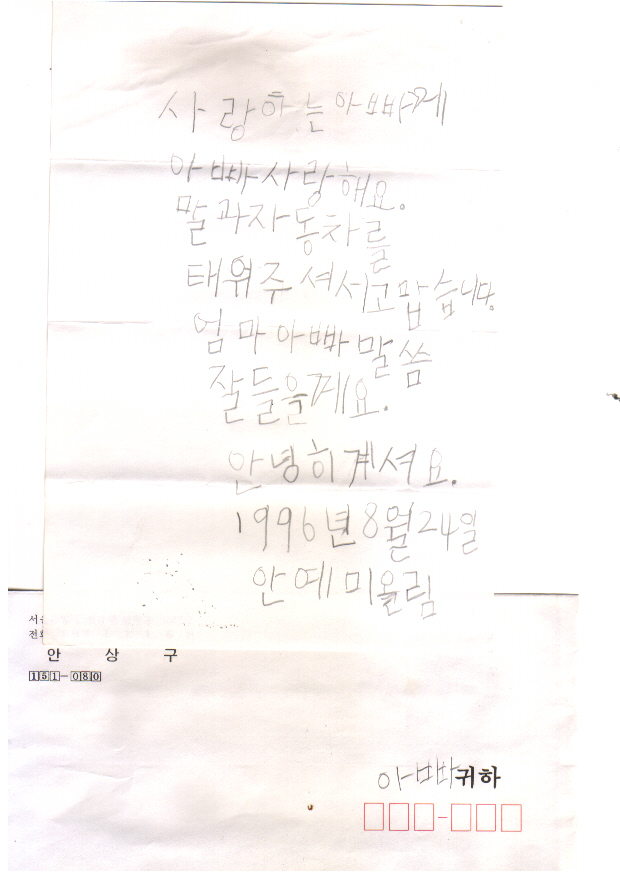 사랑하는아빠께
아빠사랑해요.
말과자동차를
태워주셔서고맙습니다.
엄마아빠말씀
잘들을께요.
안녕히계셔요.
1996년8월24일
안예미올림
서울
전화
안 상 구
151-080
아빠귀하